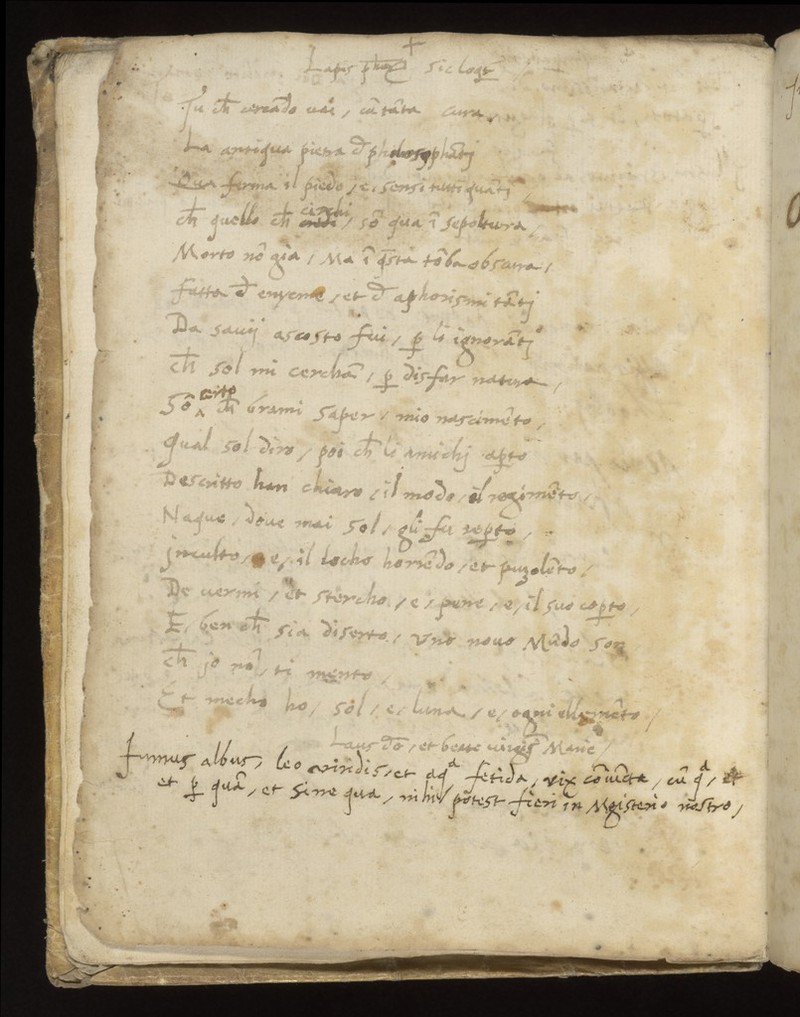 +
Lapis sic loqr̃
Tu ch̃ cercãdo vai, cũ tãta cura
La antiqua piera d̃ philosophãtj
Qua ferma il piede, e, sensi tutiquãtj,
ch̃ quello ch̃ circhi, sõ qua ĩ sepoltura,
Morto nõ già, Ma ĩ q̃sta tõba obscura,
fatta d̃ enygme, et d̃ aphorismi tãtj
Da savij ascosto fui, p̱ li ignorãtj
ch̃ sol mi cerchã, p̱ disfar natura,
Sõ certo ch̃ brami saper, mio nascimẽto,
Qual sol diro, poi ch̃ li amichj ap̱to
Descritto han chiaro, il modo, el regimẽto,
Naque, dove mai sol, gli fu rep̱to,
jnculto, e, il locho horrẽdo, et puzolẽto,
De vermi, et stercho, e, pene, e, il suo cop̱to,
E, ben ch̃ sia diserto, uno novo Mũdo son
ch̃ jo nõ, ti mento,
Et mecho ho, sol, e, luna, e, ogni ellemẽto,
Laus dõ, et beate virgis̃ Marie,
Fumus albus, leo viridis, et aqa fetida, vix cõiũcta, cũ qa, et
et p̱ quã, et sine qua, nihil põtest fieri in Mgisterio nostro,